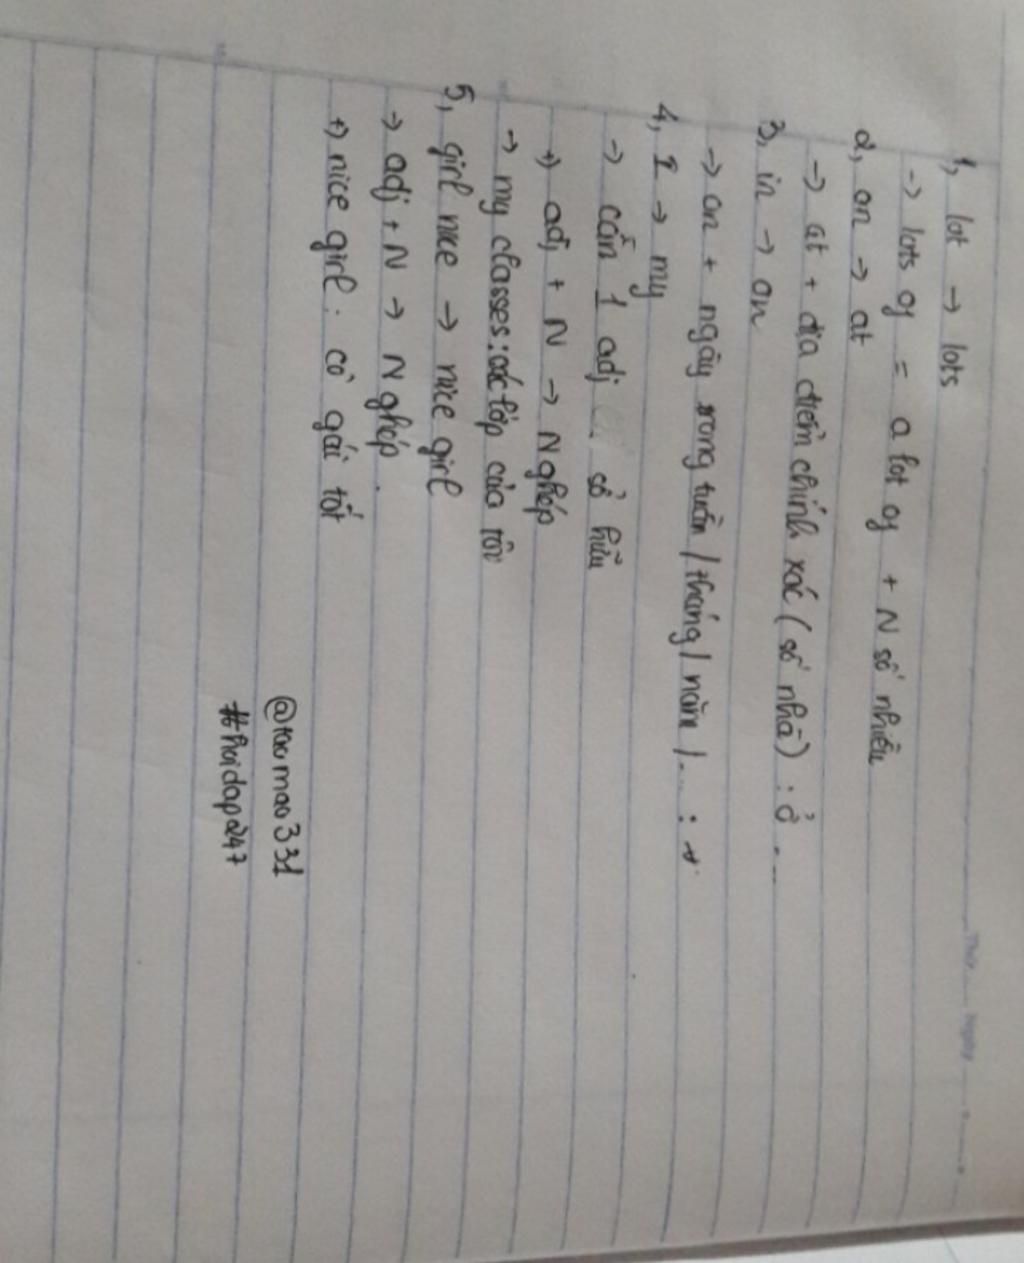 Thứ Ngày
1, lot → lots
→ lots of = a lot of + N số nhiều
2, on → at
→ at + địa điểm chính xác (số nhà) : ở ...
3, in → on
→ on + ngày trong tuần / tháng / năm / ... : +
4, I → my
→ cần 1 adj sở hữu
+) adj + N → N ghép
→ my classes : các lớp của tôi
5, girl nice → nice girl
→ adj + N → N ghép.
+) nice girl : cô gái tốt
@taomao331
#hoidap247